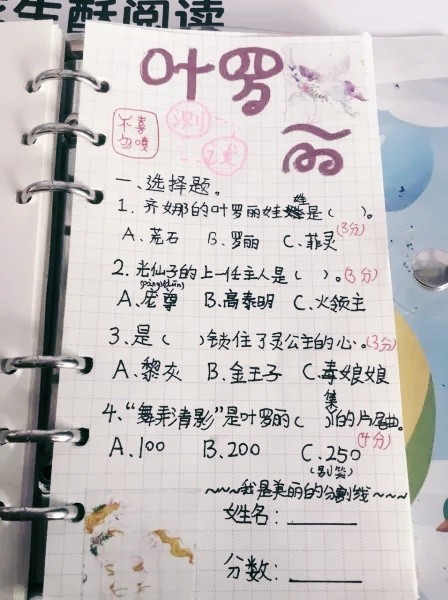 生酥阅读
叶罗丽
不喜勿喷
测试
一、选择题。
1. 齐娜的叶罗丽娃娃是( )。(3分)
A、荒石 B、罗丽 C、菲灵
2. 光仙子的上一任主人是( )。(3分)
(páng)(dūn)
A、庞尊 B、高泰明 C、火领主
3. 是( )锁住了灵公主的心。(3分)
A、黎灰 B、金王子 C、毒娘娘
4、“舞未清影”是叶罗丽( )集的片尾曲。(4分)
A、100 B、200 C、250
(别笑)
~~~我是美丽的分割线~~~
姓名:
分数: